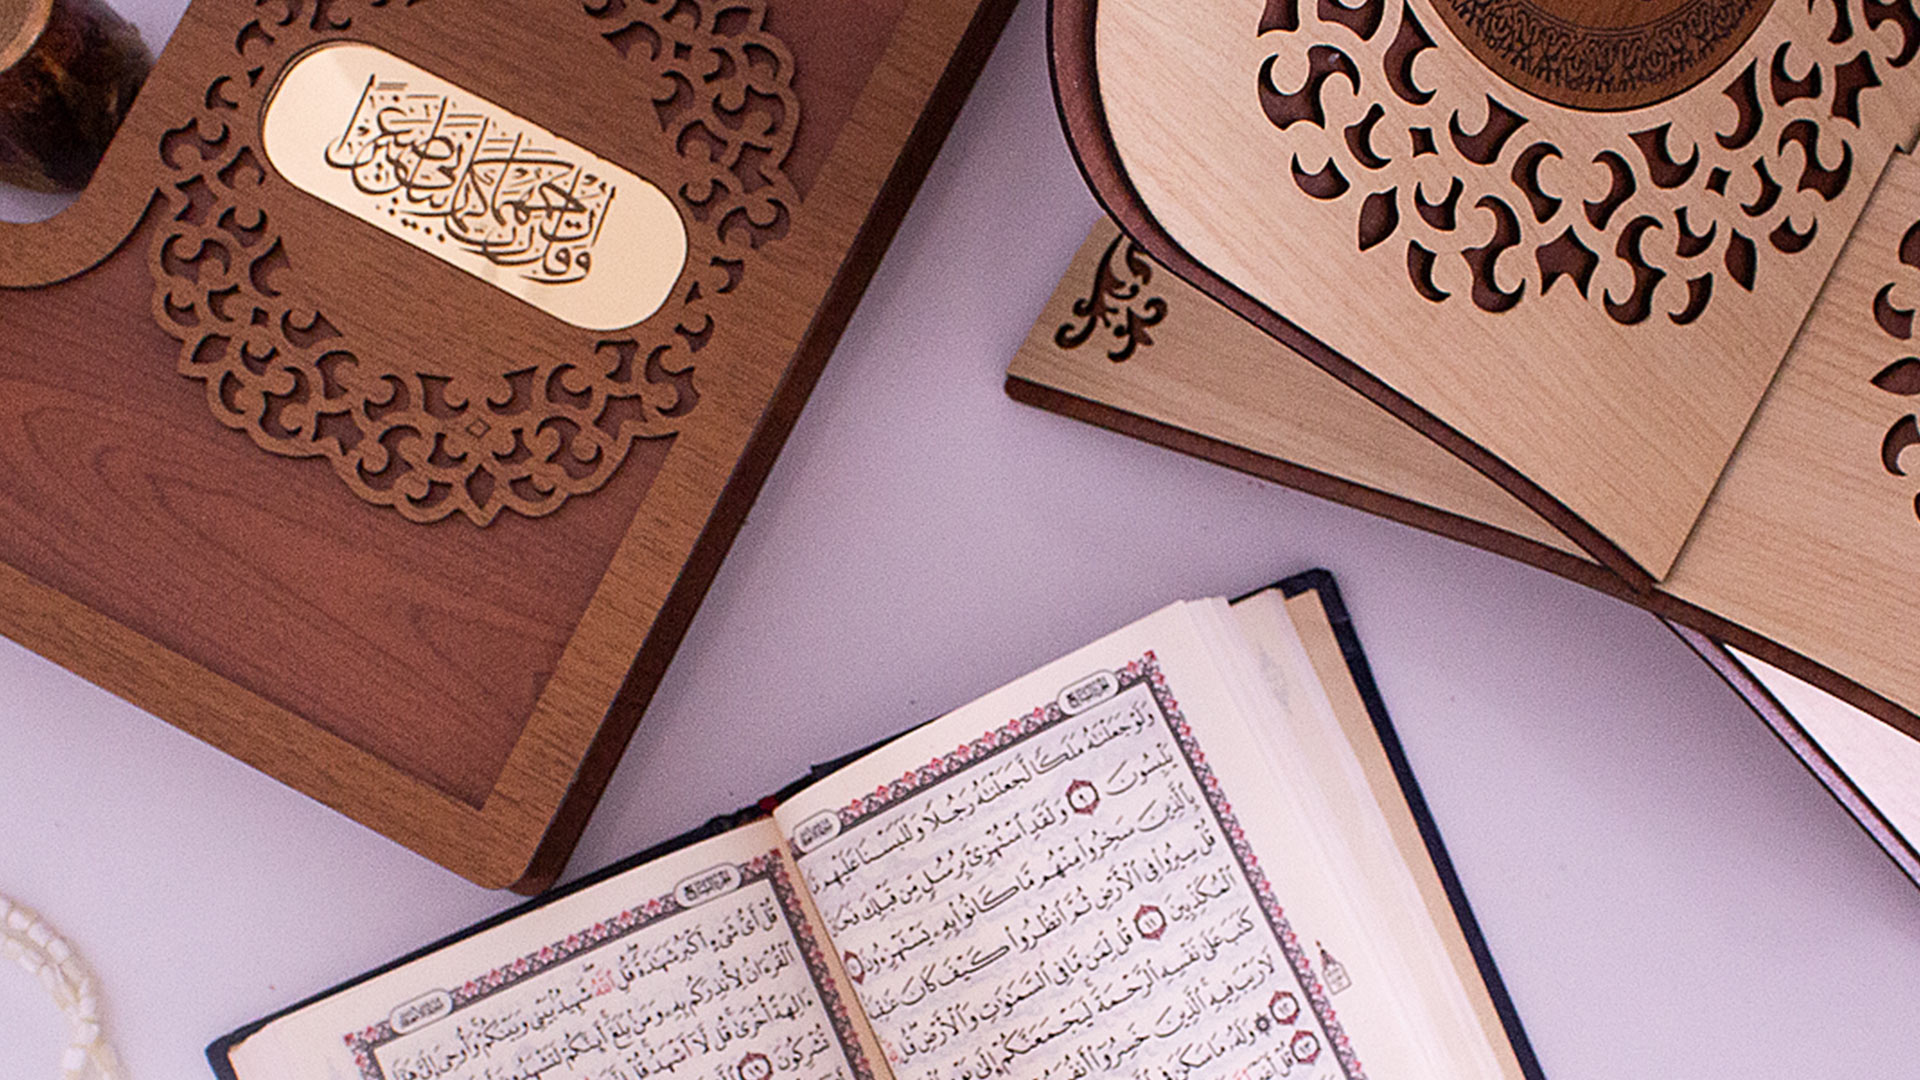 وَقُل رَّبِّ ارْحَمْهُمَا كَمَا رَبَّيَانِي صَغِيرًا
وَلَوْ جَعَلْنَٰهُ مَلَكًا لَّجَعَلْنَٰهُ رَجُلًا وَلَلَبَسْنَا عَلَيْهِم
يَلْبِسُونَ ٩ وَلَقَدِ ٱسْتُهْزِئَ بِرُسُلٍ مِّن قَبْلِكَ فَحَاقَ
بِٱلَّذِينَ سَخِرُوا۟ مِنْهُم مَّا كَانُوا۟ بِهِۦ يَسْتَهْزِءُونَ ١٠
قُلْ سِيرُوا۟ فِى ٱلْأَرْضِ ثُمَّ ٱنظُرُوا۟ كَيْفَ كَانَ عَٰقِبَةُ
ٱلْمُكَذِّبِينَ ١١ قُل لِّمَن مَّا فِى ٱلسَّمَٰوَٰتِ وَٱلْأَرْضِ قُل
كَتَبَ عَلَىٰ نَفْسِهِ ٱلرَّحْمَةَ لَيَجْمَعَنَّكُمْ إِلَىٰ يَوْمِ
لَا رَيْبَ فِيهِ ٱلَّذِينَ خَسِرُوٓا۟ أَنفُسَهُمْ
١٢ وَلَهُۥ مَا سَكَنَ فِى
١٣ قُلْ أَغَيْرَ
قُلْ أَىُّ شَىْءٍ أَكْبَرُ شَهَٰدَةً قُلِ ٱللَّهُ شَهِيدٌۢ بَيْنِى وَبَيْنَكُمْ وَأُوحِىَ إِلَىَّ هَٰذَا
ٱلْقُرْءَانُ لِأُنذِرَكُم بِهِۦ وَمَنۢ بَلَغَ أَئِنَّكُمْ لَتَشْهَدُونَ
ءَالِهَةً أُخْرَىٰ قُل لَّآ أَشْهَدُ قُلْ
تُشْرِكُونَ ١٩